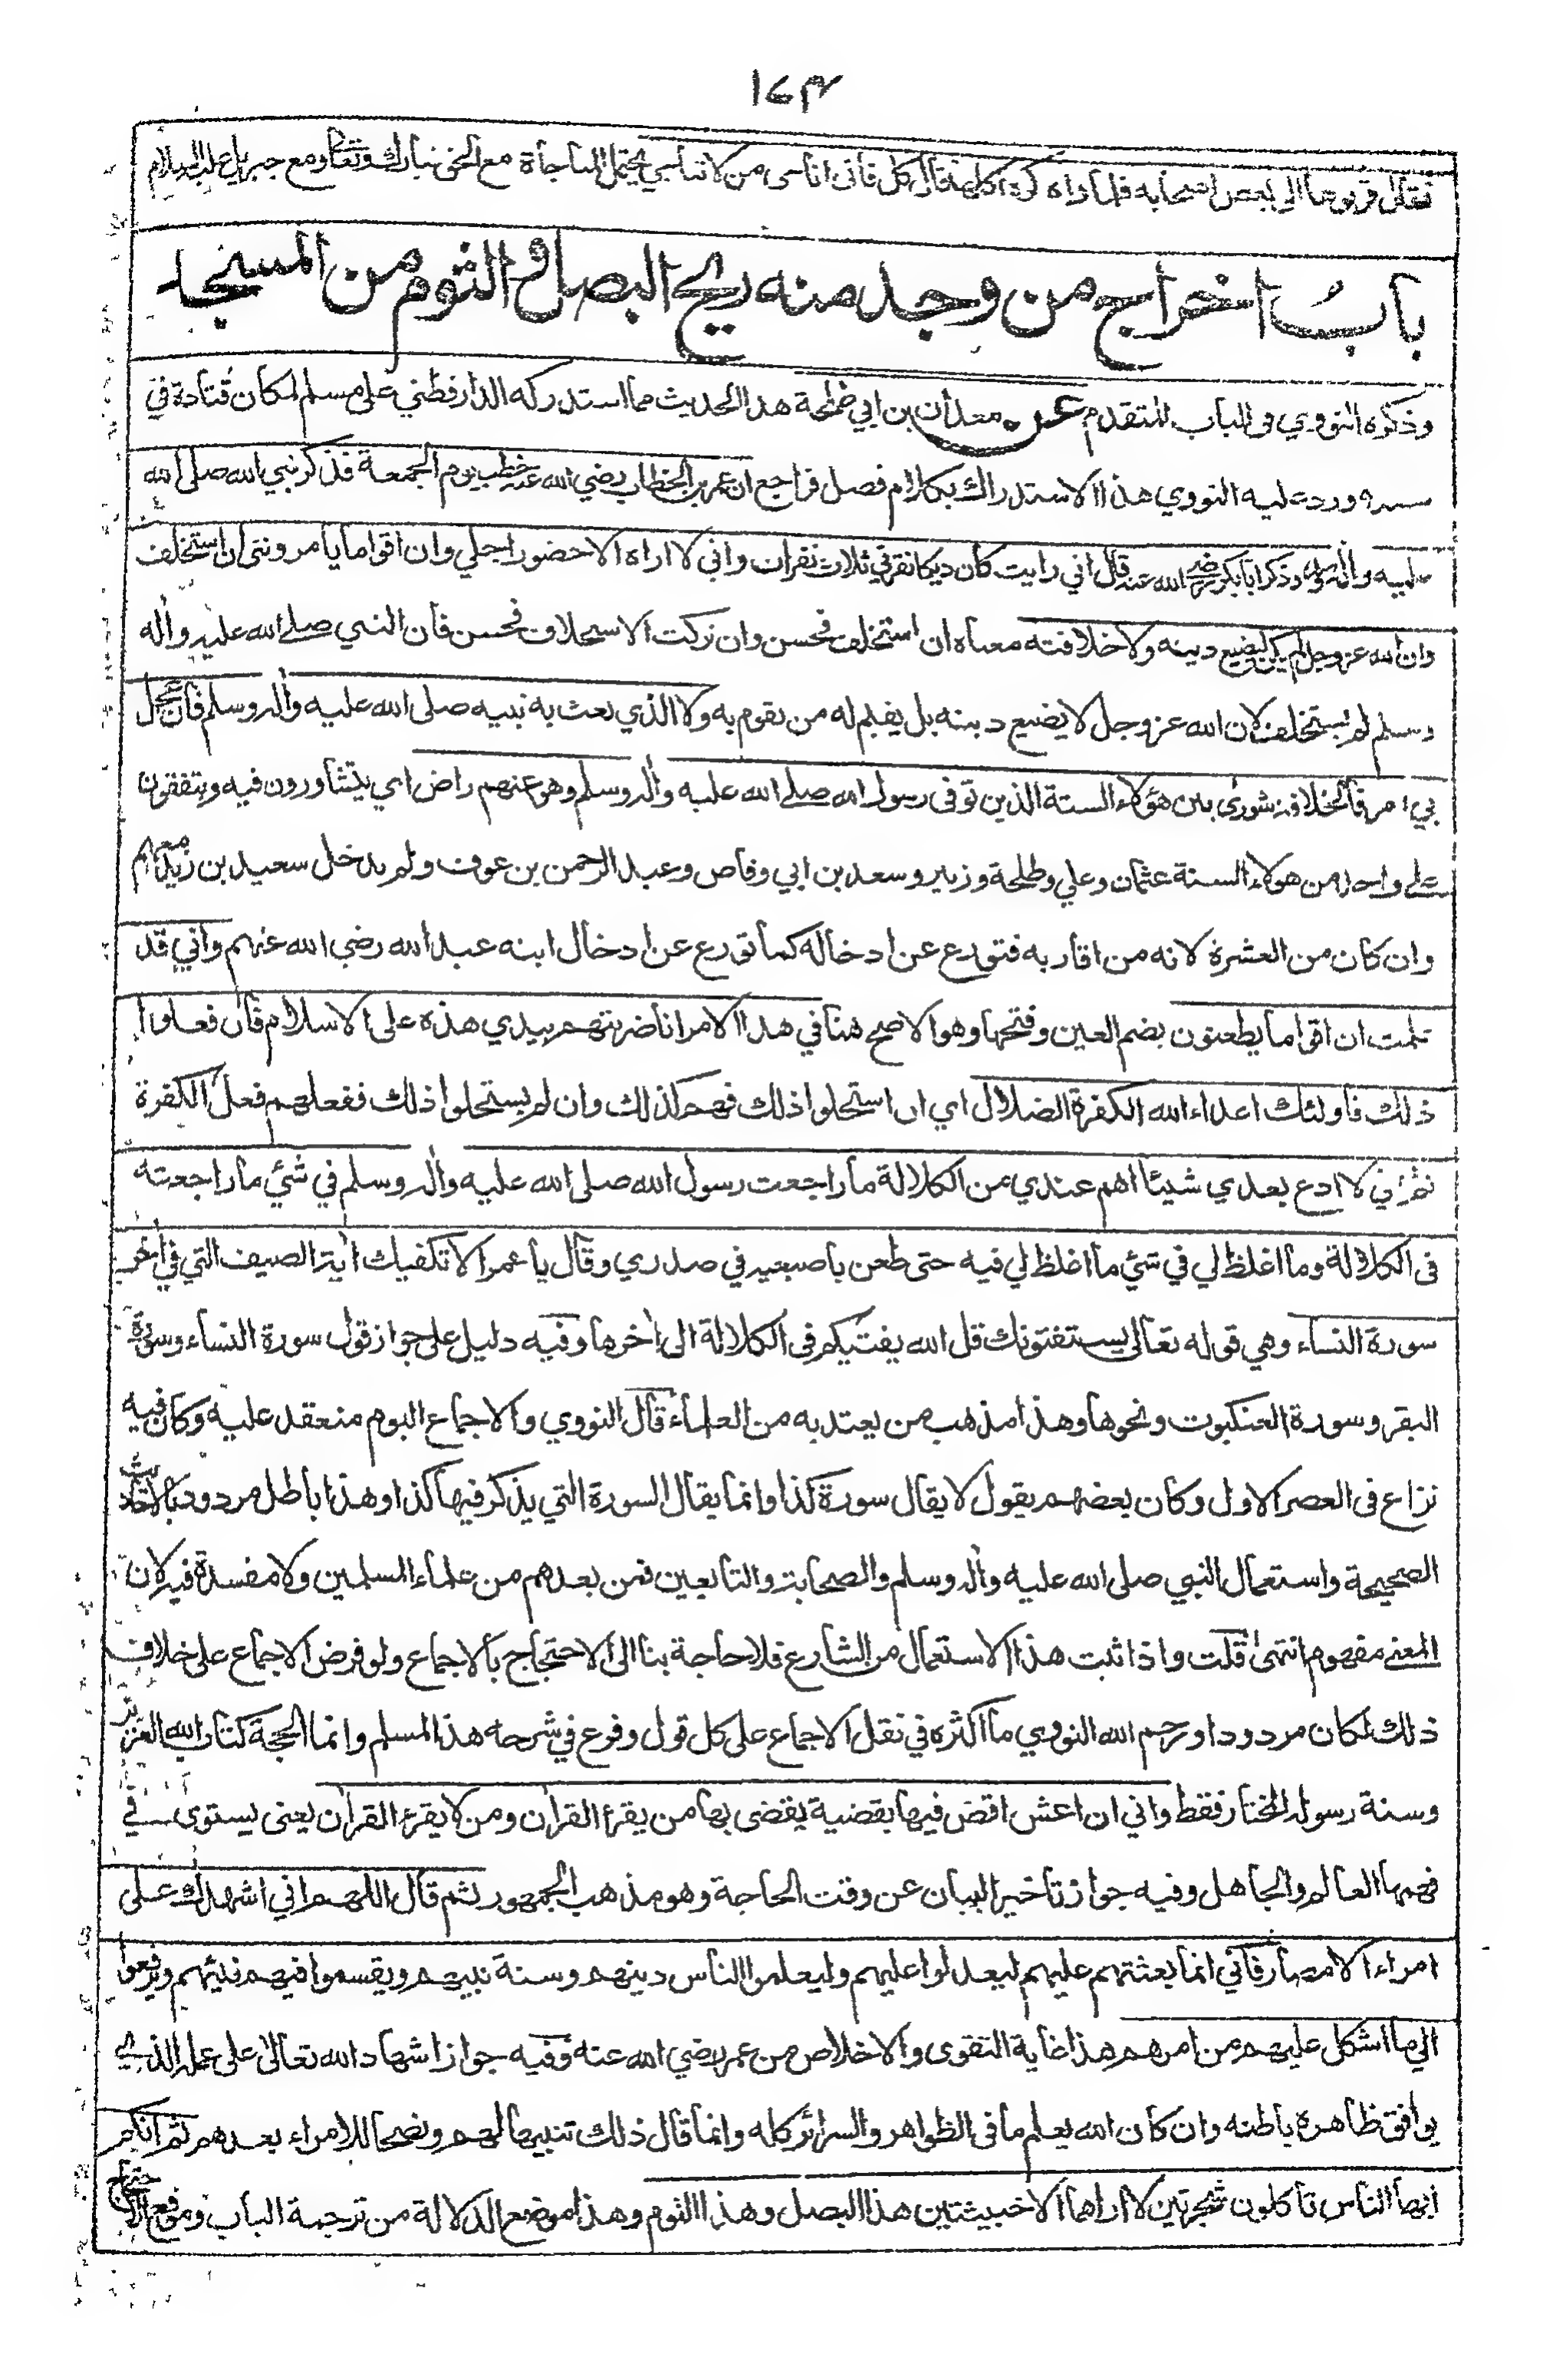 ١٧٣
فقال قربوها الى بعض اصحابه فلما راه كره اكلها قال كل فاني اناجي من لا تناجي يحتمل المناجاة مع الحق تبارك وتعالى ومع جبريل عليه السلام
باب اخراج من وجد منه ريح البصل والثوم من المسجد
وذكره النووي في الباب المتقدم عن معدان بن ابي طلحة هذا الحديث مما استدركه الدارقطني على مسلم لمكان قتادة في
سنده ورد عليه النووي هذا الاستدراك بكلام فصل فراجع ان عمر بن الخطاب رضي الله عنه خطب يوم الجمعة فذكر نبي الله صلى الله
عليه واله وسلم وذكر ابا بكر رضي الله عنه قال اني رايت كأن ديكا نقرني ثلاث نقرات واني لا اراه الا حضور اجلي وان اقواما يأمرونني ان استخلف
وان الله عز وجل لم يكن ليضيع دينه ولا خلافته معناه ان استخلف فحسن وان تركت الاستخلاف فحسن فان النبي صلى الله عليه واله
وسلم لم يستخلف لان الله عز وجل لا يضيع دينه بل يقيم له من يقوم به ولا الذي بعث به نبيه صلى الله عليه واله وسلم فان عجل
بي امر فالخلافة شورى بين هؤلاء الستة الذين توفى رسول الله صلى الله عليه واله وسلم وهو عنهم راض اي يتشاورون فيه ويتفقون
على واحد من هولاء الستة عثمان وعلي وطلحة وزبير وسعد بن ابي وقاص وعبد الرحمن بن عوف ولم يدخل سعيد بن زيد معهم
وان كان من العشرة لانه من اقاربه فتورع عن ادخاله كما تورع عن ادخال ابنه عبد الله رضي الله عنهم واني قد
علمت ان اقواما يطعنون بضم العين وفتحها وهو الاصح هنا في هذا الامر انا ضربتهم بيدي هذه على الاسلام فان فعلوا
ذلك فاولئك اعداء الله الكفرة الضلال اي ان استحلوا ذلك فهم كذلك وان لم يستحلوا ذلك ففعلهم فعل الكفرة
ثم اني لا ادع بعدي شيئا اهم عندي من الكلالة ما راجعت رسول الله صلى الله عليه واله وسلم في شئي ما راجعته
في الكلالة وما اغلظ لي في شئي ما اغلظ لي فيه حتى طعن باصبعيه في صدري وقال يا عمر الا تكفيك اية الصيف التي في اخر
سورة النساء وهي قوله تعالى يستفتونك قل الله يفتيكم في الكلالة الى اخرها وفيه دليل على جواز قول سورة النساء وسورة
البقر وسورة العنكبوت ونحوها وهذا مذهب من يعتد به من العلماء قال النووي والاجماع اليوم منعقد عليه وكان فيه
نزاع في العصر الاول وكان بعضهم يقول لا يقال سورة كذا وانما يقال السورة التي يذكر فيها كذا وهذا باطل مردود بالاحاديث
الصحيحة واستعمال النبي صلى الله عليه واله وسلم والصحابة والتابعين فمن بعدهم من علماء المسلمين ولا مفسدة فيه لان
المعنى مفهوم انتهى قلت واذا ثبت هذا الاستعمال من الشارع فلا حاجة بنا الى الاحتجاج بالاجماع ولو فرض الاجماع على خلاف
ذلك لكان مردودا ورحم الله النووي ما اكثره في نقل الاجماع على كل قول وفرع في شرحه هذا المسلم وانما الحجة كتاب الله العزيز
وسنة رسوله المختار فقط واني ان اعش اقض فيها بقضية يقضى بها من يقرء القران ومن لا يقرء القران يعنى يستوى في
فهمها العالم والجاهل وفيه جواز تاخير البيان عن وقت الحاجة وهو مذهب الجمهور ثم قال اللهم اني اشهدك على
امراء الامصار فاني انما بعثتهم عليهم ليعدلوا عليهم وليعلموا الناس دينهم وسنة نبيهم ويقسموا فيهم فيئهم ويرفعوا
الي ما اشكل عليهم من امرهم هذا غاية التقوى والاخلاص من عمر رضي الله عنه وفيه جواز اشهاد الله تعالى على عمله الذي
يوافق ظاهره باطنه وان كان الله يعلم ما في الظواهر والسرائر كله وانما قال ذلك تنبيها لهم ونصحا للامراء بعدهم ثم انكم
ايها الناس تأكلون شجرتين لا اراهما الا خبيثتين هذا البصل وهذا الثوم وهذا موضع الدلالة من ترجمة الباب وموقع الاحتجاج